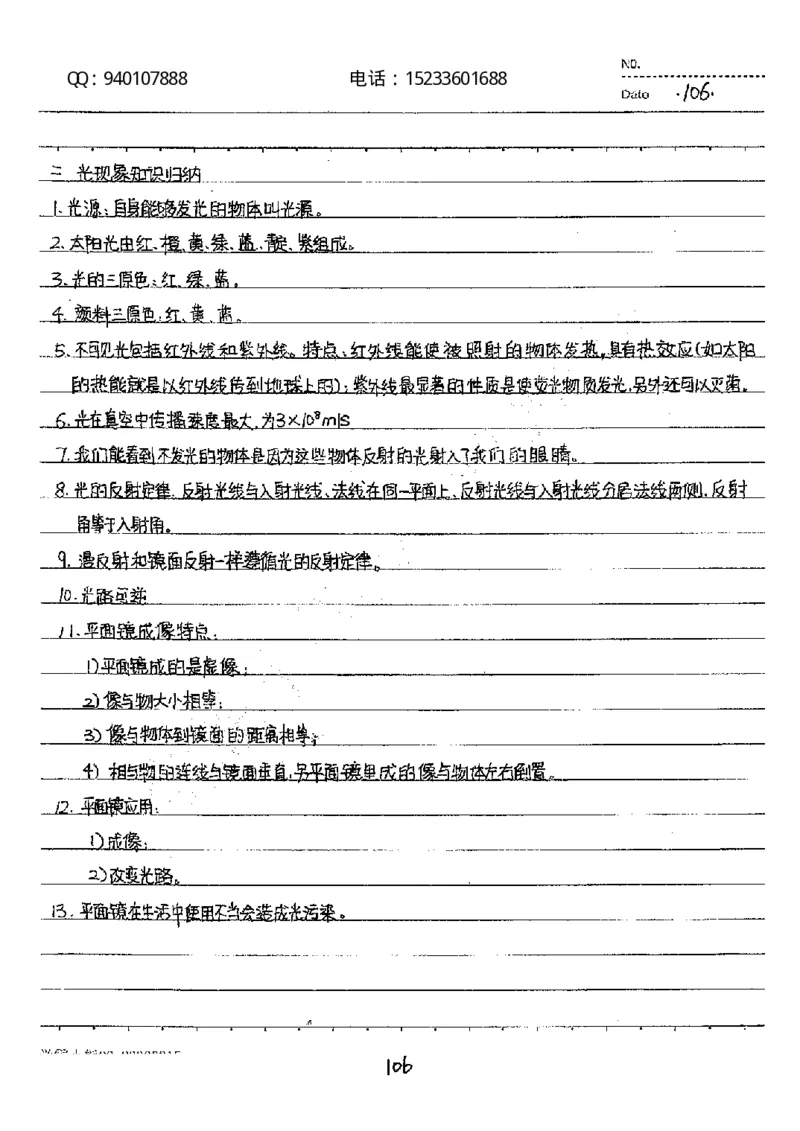 QQ：940107888 电话：15233601688
NO.
Date ·106·
二 光现象知识归纳
1.光源：自身能够发光的物体叫光源。
2.太阳光由红、橙、黄、绿、蓝、靛、紫组成。
3.光的三原色：红、绿、蓝。
4.颜料三原色：红、黄、蓝。
5.不可见光包括红外线和紫外线。特点：红外线能使被照射的物体发热，具有热效应(如太阳
的热能就是以红外线传到地球上的)；紫外线最显著的性质是使荧光物质发光，另外还可以灭菌。
6.光在真空中传播速度最大，为3×10⁸m/s
7.我们能看到不发光的物体是因为这些物体反射的光射入了我们的眼睛。
8.光的反射定律：反射光线与入射光线、法线在同一平面上、反射光线与入射光线分居法线两侧，反射
角等于入射角。
9.漫反射和镜面反射一样遵循光的反射定律。
10.光路可逆
11.平面镜成像特点：
1)平面镜成的是虚像；
2)像与物大小相等；
3)像与物体到镜面的距离相等；
4)相与物的连线与镜面垂直，另平面镜里成的像与物体左右倒置。
12.平面镜应用：
1)成像；
2)改变光路。
13.平面镜在生活中使用不当会造成光污染。
106